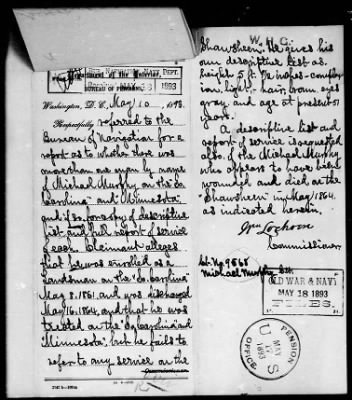 Department of the Interior,
BUREAU OF PENSIONS,
Washington, D. C., May 10, 1893.
Respectfully referred to the
Bureau of Navigation for a
report as to whether there was
more than one man by name
of Michael Murphy on the "So.
Carolina" and "Minnesota,"
and if so, for a copy of descriptive
list and full report of service
of each. Claimant alleges
that he was enrolled as a
Landsman on the "So. Carolina"
May 2, 1861, and was discharged
May 16, 1864, and that he was
treated on the "So. Carolina" and
Minnesota", but he fails to
refer to any service on the
Commissioner.
W. H. C.
Shawsheen". He gives his
own descriptive list as.
height, 5 ft. 7 inches - complex-
ion, light, - hair, brown, eyes
gray and age at present 51
years.
A descriptive list and
report of service is requested
also, of the Michael Murphy
who appears to have been
wounded and died on the
"Shawsheen" in May, 1864,
as indicated herein.
Wm Lochren
Commissioner.
Michael Murphy
OLD WAR & NAVY
MAY 18 1893
FILES.
PENSION
OFFICE
U S
MAY
17
1893